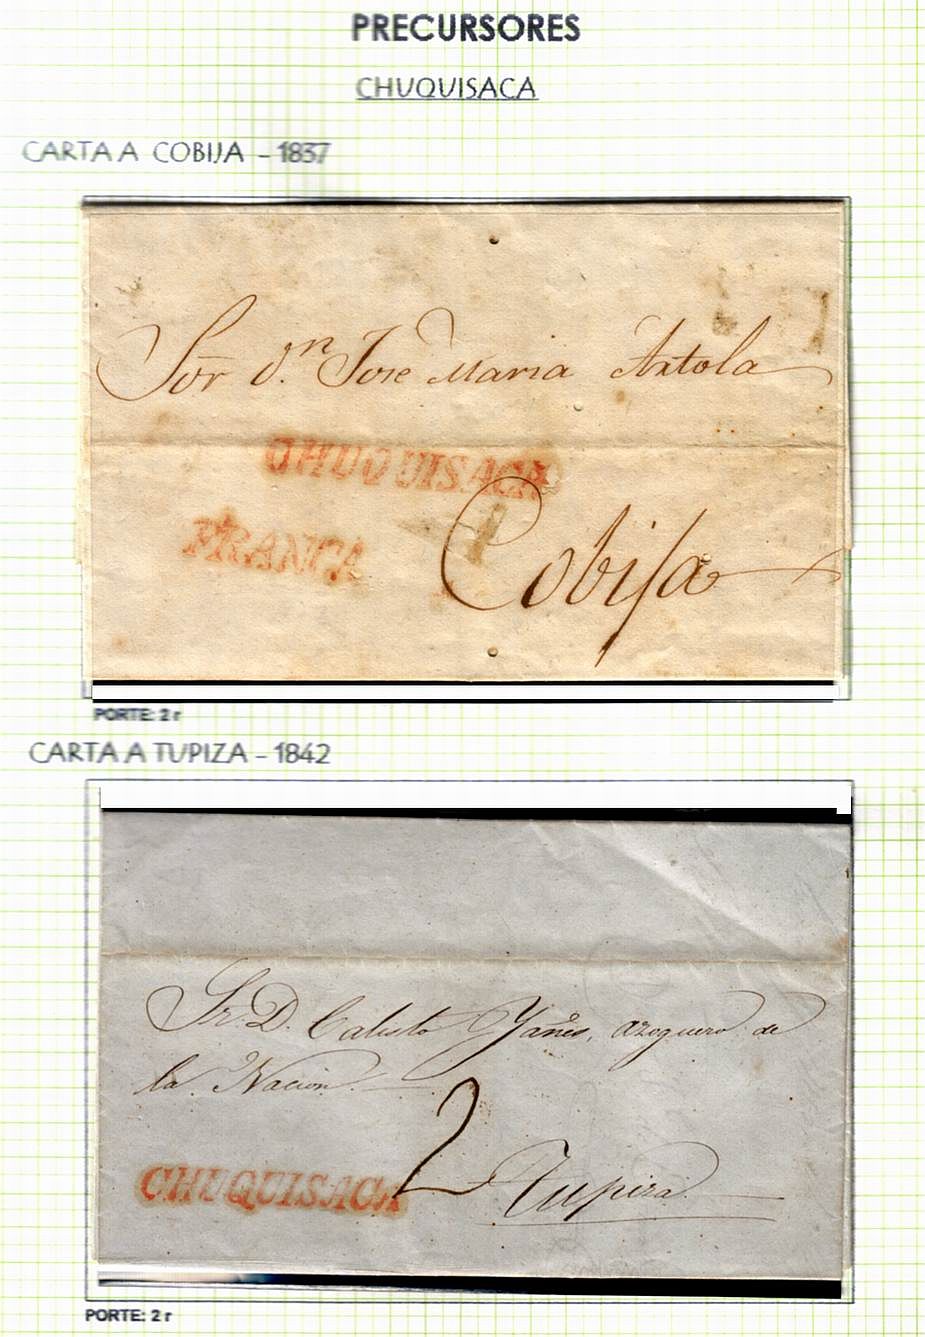 PRECURSORES
CHUQUISACA
CARTA A COBIJA – 1837
Sor. dn. Jose Maria Artola
CHUQUISACA
FRANCA
Cobija
PORTE: 2 r
CARTA A TUPIZA – 1842
Sr. D. Calisto Yañes, azoguero de
la Nacion.
2
CHUQUISACA
Tupiza
PORTE: 2 r